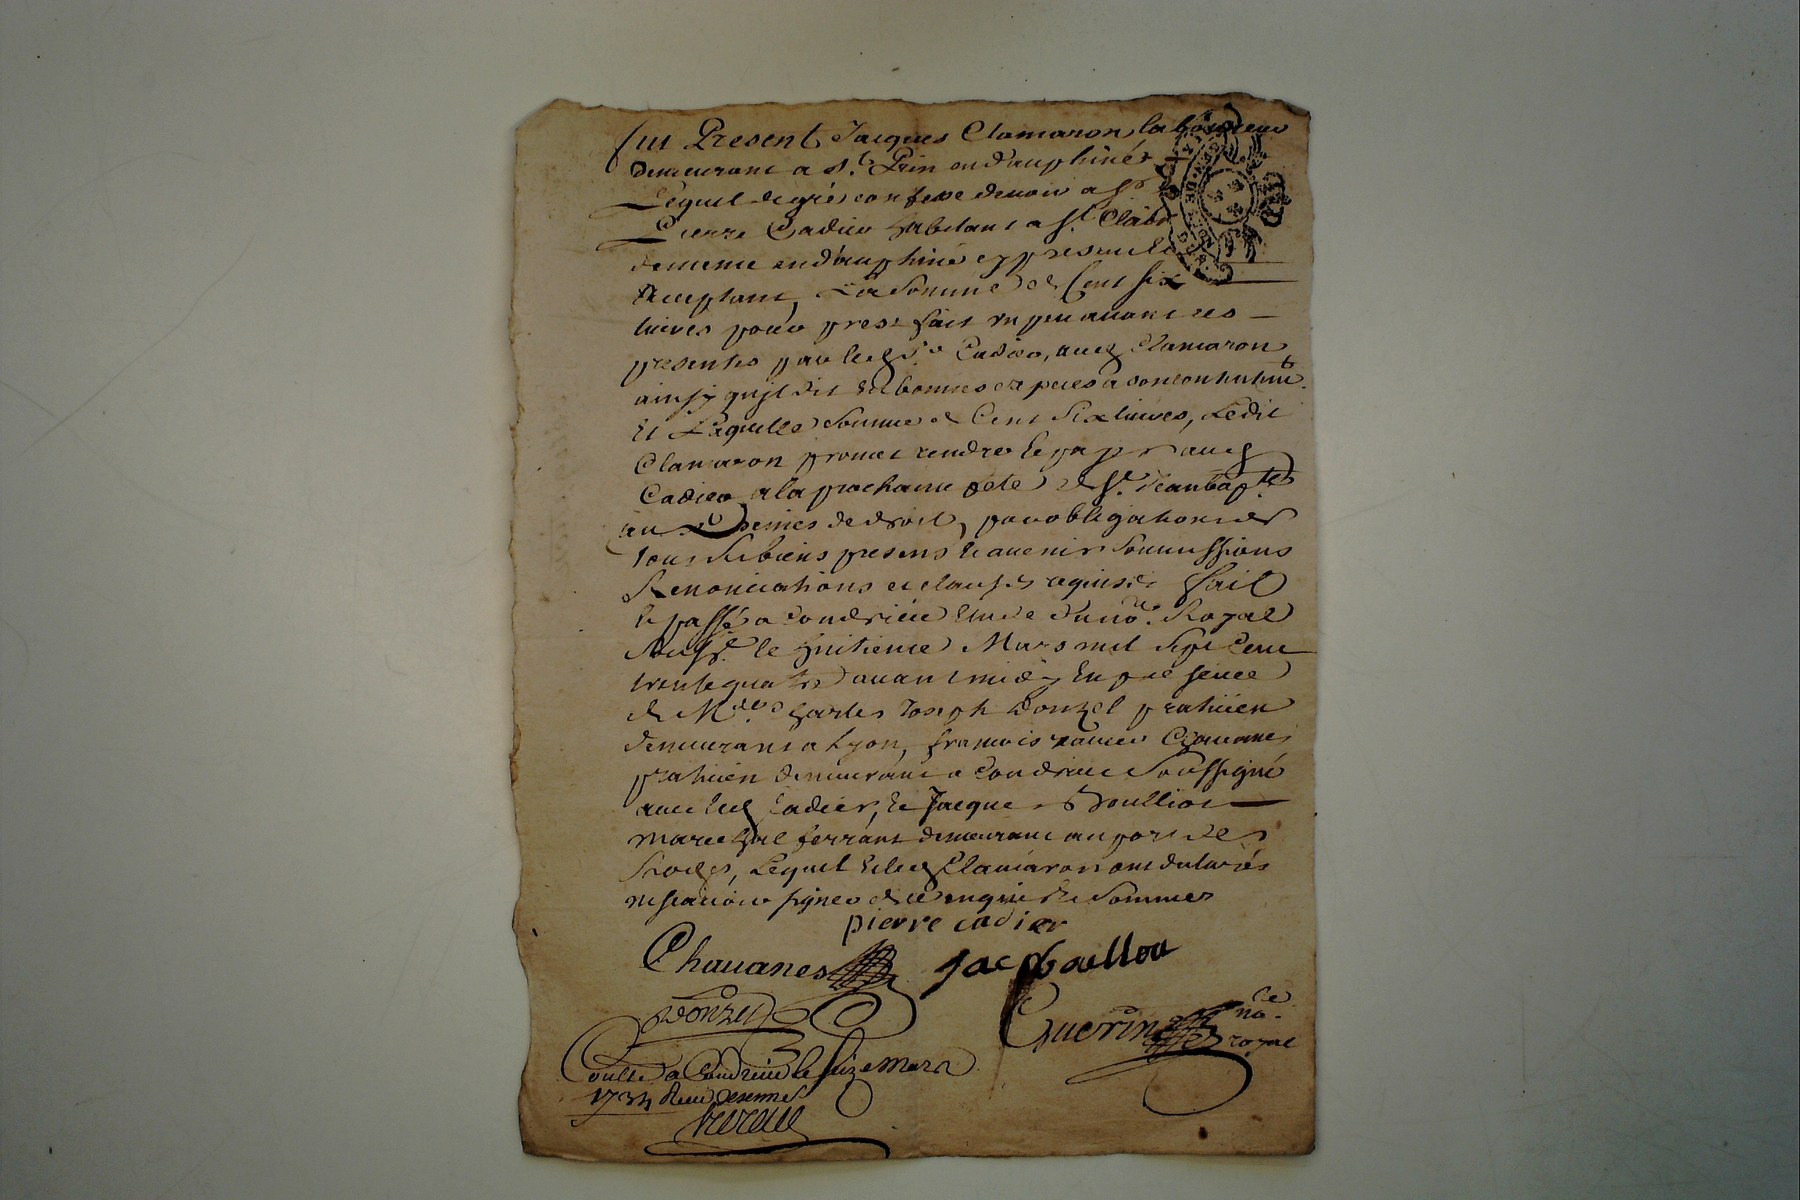 fut Present Jacques Clamaron laboureur
demeurant a St. Prin en dauphiné
Lequel de gré confesse devoir a Sr
Pierre Cadier habitant a St. Clair
de meme en dauphiné cy present et
acceptant, La Somme de Cent Six
livres pour prest fait un peu avant ces
presentes par led. Sr. Cadier, aud. Clamaron
ainsy qu'jl dit en bonnes especes a son contentemt.
Et Laquelle Somme de Cent Six livres, Ledit
Clamaron promet rendre et payer aud.
Cadier a la prochaine fete de St. Jean bapte.
au de droit, par obligation de
tous Ses biens presens et avenir Soumissions
Renonciations et clauses requises fait
et passé a Condrieu Etude du nore. Royal
Soussé. le huitieme Mars mil Sept Cent
trente quatre avant midy En presence
de Me. Charles Joseph Donzel praticien
demeurant a Lyon, francois xavier Chavanes
praticien demeurant a Condrieu Soussigné
avec led. Cadier, et Jacque Boulliot
marechal ferrant demeurant au port de
Lequel et led. Clamaron ont declarés
ne scavoir signer de ce enquis et Sommes
pierre cadier
Chavanes Jacp baellou
Donzel
Guerin nore. royal
Coullé a Condrieu le seize mars
1734 Receu